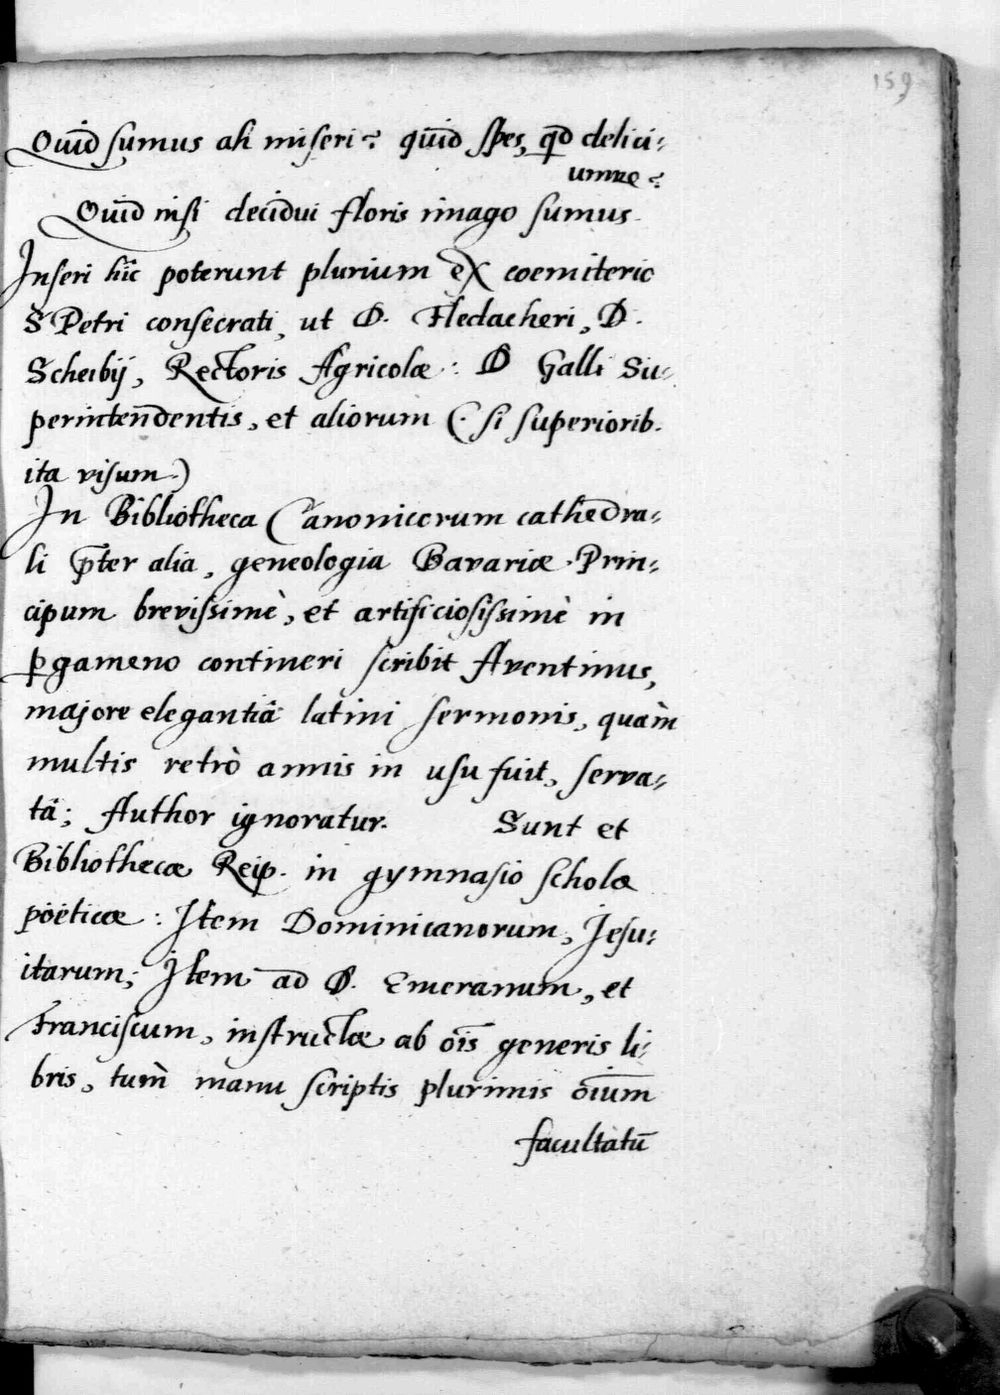 159
Quid sumus ah miseri? quid spes, qd delici-
umue?
Quid nisi decidui floris imago sumus.
Inseri hîc poterunt plurium ex coemiterio
S Petri consecrati, ut D. Fledacheri, D.
Scheibij, Rectoris Agricolæ: D Galli Su-
perintendentis, et aliorum (: si superiorib.
ita visum.)
In Bibliotheca Canonicorum cathedra-
li p̄ter alia, geneologia Bavariæ Prin-
cipum brevissimè, et artificiosissimè in
ꝑgameno contineri scribit Aventinus,
majore elegantiâ latini sermonis, quàm
multis retrò annis in usu fuit, serva-
tâ; Author ignoratur. Sunt et
Bibliothecæ Reip. in gymnasio scholæ
poëticæ: Item Dominicanorum, Jesu-
itarum; Item ad D. Emeranum, et
Franciscum, instructæ ab oīs generis li-
bris, tum manu scriptis plurimis oīum
facultatū